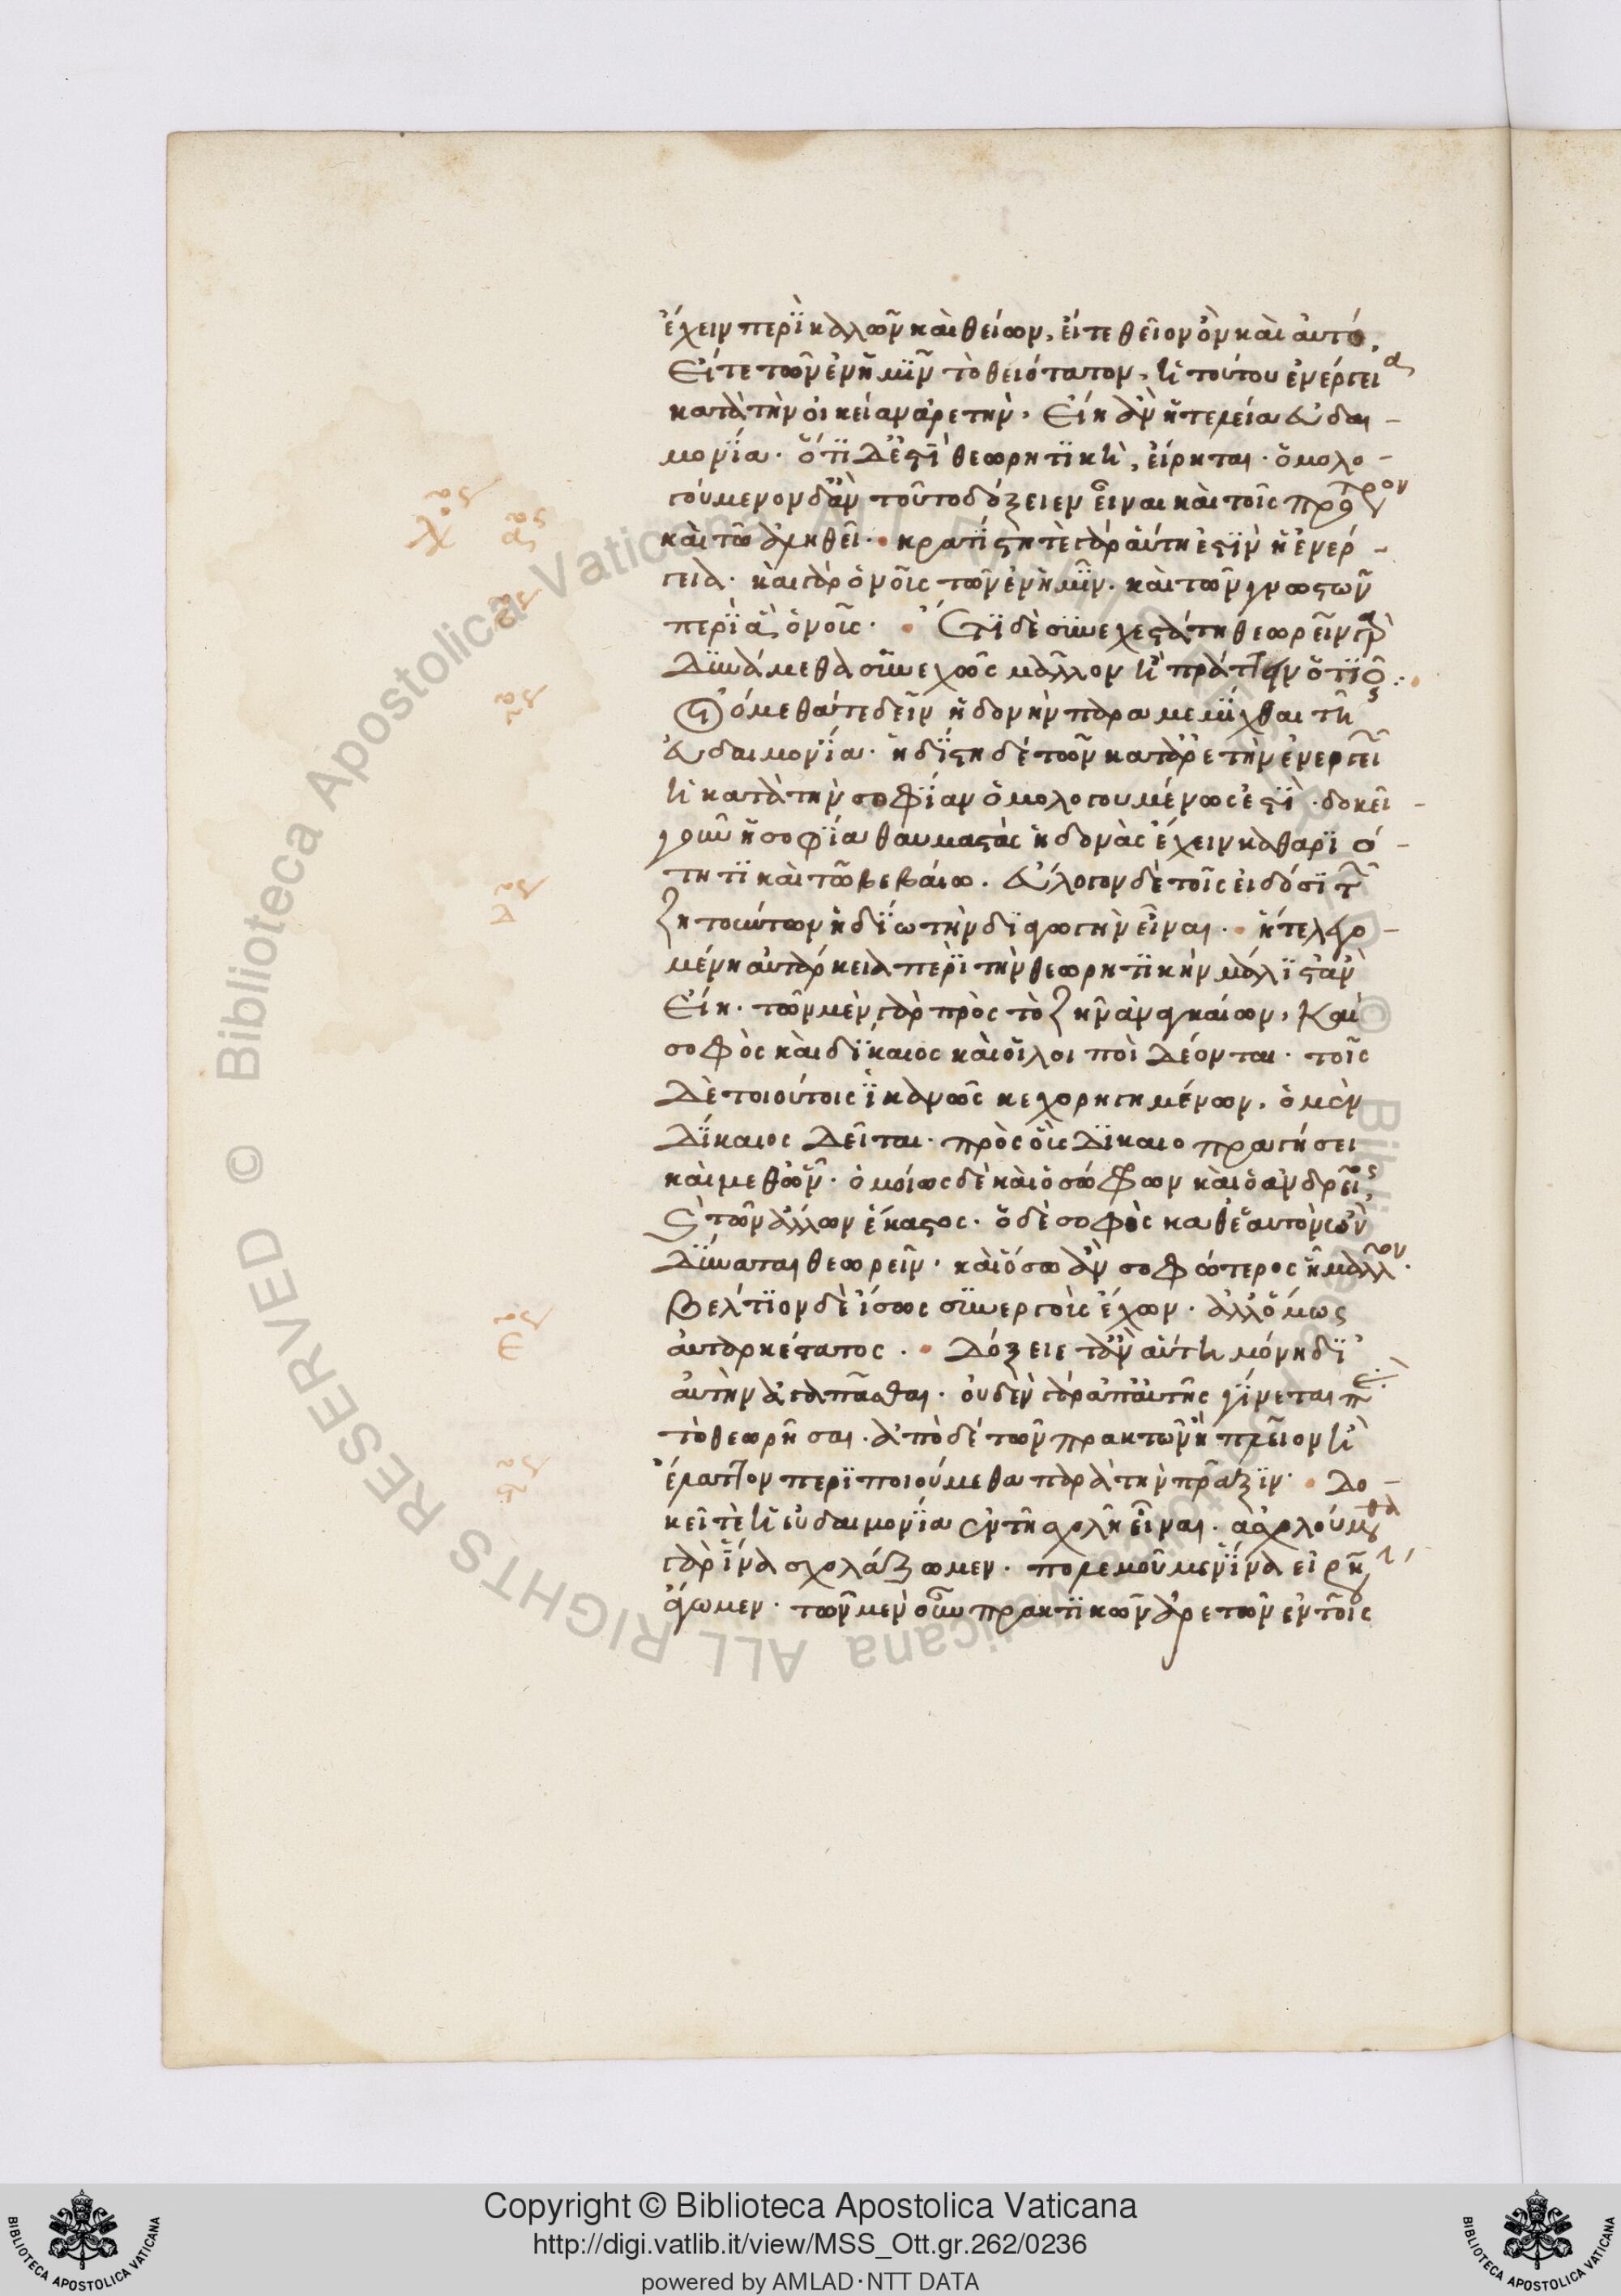 ἔχειν περὶ καλῶν καὶ θείων, εἴτε θεῖον ὂν καὶ αὐτό,
εἴτε τῶν ἐν ἡμῖν τὸ θειότατον, ἡ τούτου ἐνέργεια
κατὰ τὴν οἰκείαν ἀρετὴν, εἴη ἂν ἡ τελεία εὐδαι-
μονία· ὅτι δ' ἐστὶ θεωρητικὴ, εἴρηται· ὁμολο-
γούμενον δ' ἂν τοῦτο δόξειεν εἶναι καὶ τοῖς πρότερον
καὶ τῶ ἀληθεῖ· κρατίστη τὲ γὰρ αὕτη ἐστὶν ἡ ἐνέρ-
γεια· καὶ γὰρ ὁ νοῦς τῶν ἐν ἡμῖν· καὶ τῶν γνωστῶν
περὶ ἃ ὁ νοῦς· ἔτι δὲ συνεχεστάτη θεωρεῖν γὰρ
δυνάμεθα συνεχῶς μᾶλλον ἢ πράττειν ὁτιοῦν:
οἰόμεθά τε δεῖν ἡδονὴν παραμεμίχθαι τῆ
εὐδαιμονία· ἡδίστη δὲ τῶν κατ' ἀρετὴν ἐνεργειῶν
ἡ κατὰ τὴν σοφίαν ὁμολογουμένως ἐστὶ· δοκεῖ
γοῦν ἡ σοφία θαυμαστὰς ἡδονὰς ἔχειν καθαριό-
τητι καὶ τῶ βεβαίω. εὔλογον δὲ τοῖς εἰδόσι τῶν
ζητούντων ἡδίω τὴν διαγωγὴν εἶναι· ἥ τε λεγο-
μένη αὐτάρκεια περὶ τὴν θεωρητικὴν μάλιστ' ἂν
εἴη· τῶν μὲν γὰρ πρὸς τὸ ζῆν ἀναγκαίων, καὶ
σοφὸς καὶ δίκαιος καὶ οἱ λοιποὶ δέονται· τοῖς
δὲ τοιούτοις ἱκανῶς κεχορηγημένων, ὁ μὲν
δίκαιος δεῖται πρὸς οὓς δικαιοπραγήσει
καὶ μεθ' ὧν· ὁμοίως δὲ καὶ ὁ σώφρων καὶ ὁ ἀνδρεῖος
καὶ τῶν ἄλλων ἕκαστος· ὁ δὲ σοφὸς καθ' ἑαυτὸν ὢν
δύναται θεωρεῖν· καὶ ὅσω ἂν σοφώτερος ἦ μᾶλλον·
βέλτιον δὲ ἴσως συνεργοὺς ἔχων· ἀλλ' ὅμως
αὐταρκέστατος· δόξειέ τ' ἂν αὐτὴ μόνη δι'
αὑτὴν ἀγαπᾶσθαι· οὐδὲν γὰρ ἀπ' αὐτῆς γίνεται παρὰ
τὸ θεωρῆσαι· ἀπὸ δὲ τῶν πρακτῶν ἢ πλεῖον ἢ
ἔλαττον περιποιούμεθα παρὰ τὴν πρᾶξιν· δο-
κεῖ τὲ ἡ εὐδαιμονία ἐν τῆ σχολῆ εἶναι· ἀσχολούμεθα
γὰρ ἵνα σχολάζωμεν· πολεμοῦμεν ἵνα εἰρήνην
ἄγωμεν· τῶν μὲν οὖν πρακτικῶν ἀρετῶν ἐν τοῖς
Copyright © Biblioteca Apostolica Vaticana
http://digi.vatlib.it/view/MSS_Ott.gr.262/0236
powered by AMLAD·NTT DATA